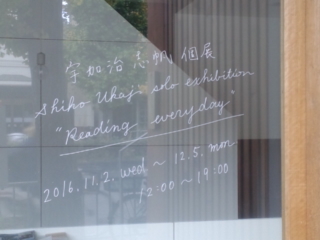 宇加治志帆個展
Shiho Ukaji solo exhibition
"Reading everyday"
2016.11.2. wed ~ 12.5. mon
12:00 ~ 19:00